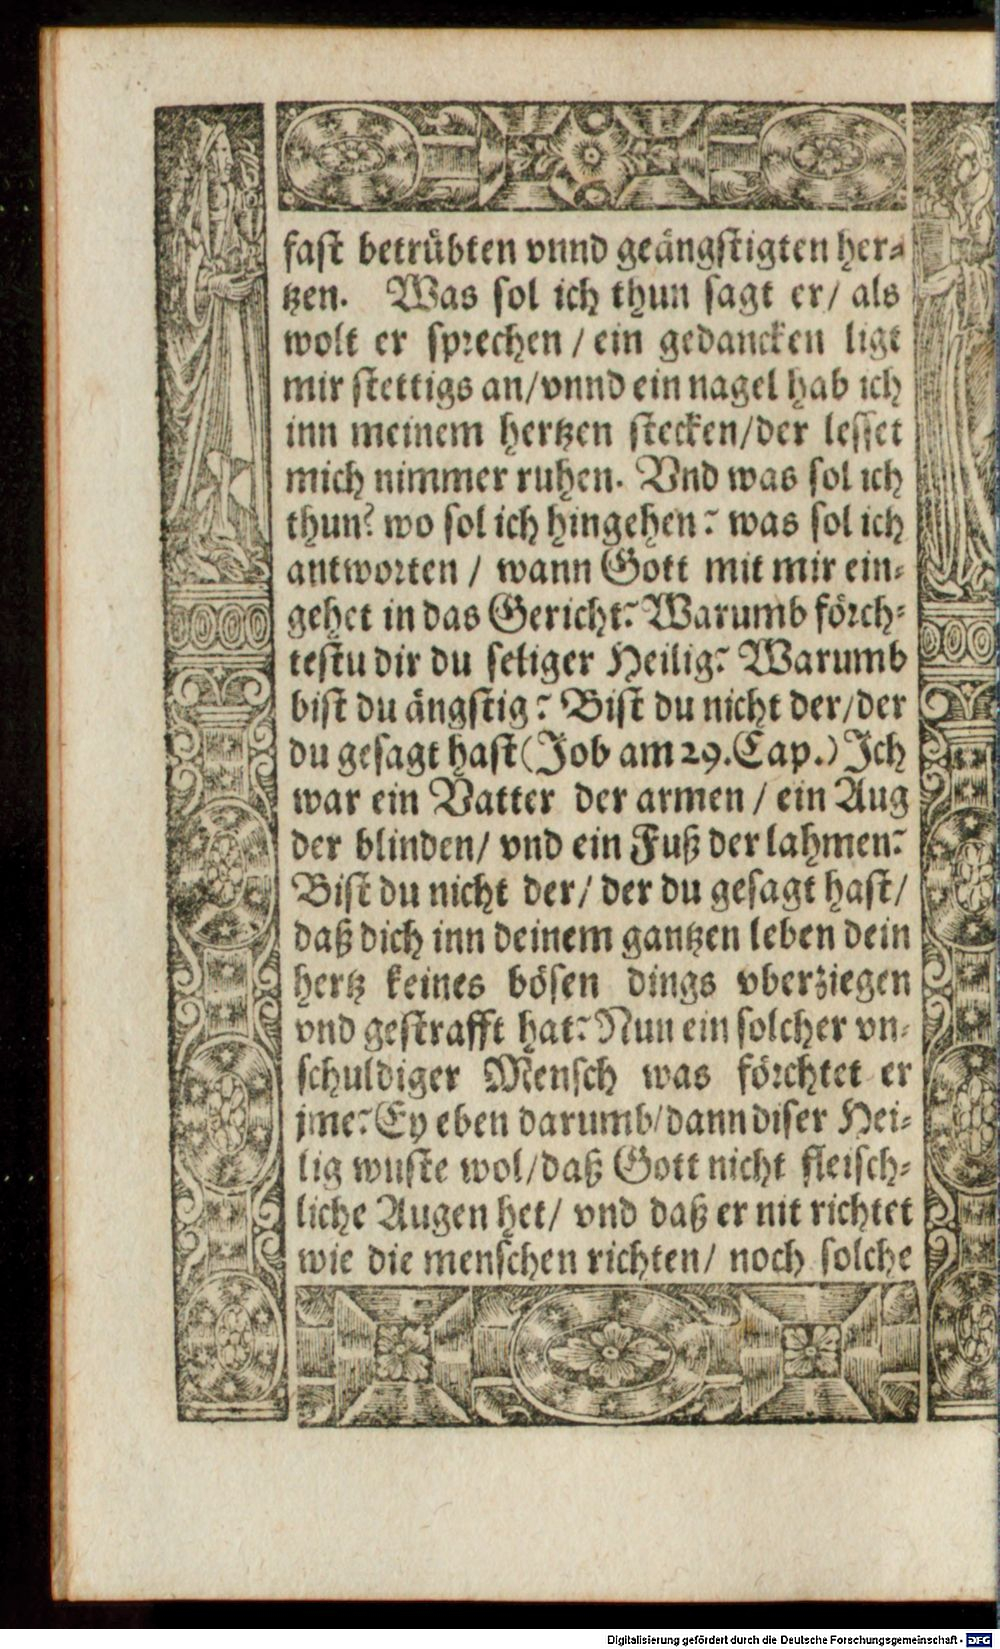 fast betrübten vnnd geängstigten her⸗
tzen. Was sol ich thun sagt er/ als
wolt er sprechen / ein gedancken ligt
mir stettigs an/vnnd ein nagel hab ich
inn meinem hertzen stecken/der lesset
mich nimmer ruhen. Vnd was sol ich
thun? wo sol ich hingehen? was sol ich
antworten / wann Gott mit mir ein⸗
gehet in das Gericht? Warumb förch⸗
testu dir du seliger Heilig? Warumb
bist du ängstig? Bist du nicht der/der
du gesagt hast (Job am 29. Cap.) Ich
war ein Vatter der armen / ein Aug
der blinden/ vnd ein Fuß der lahmen?
Bist du nicht der/ der du gesagt hast/
daß dich inn deinem gantzen leben dein
hertz keines bösen dings vberziegen
vnd gestrafft hat? Nun ein solcher vn⸗
schuldiger Mensch was förchtet er
jme? Ey eben darumb/dann diser Hei⸗
lig wuste wol/daß Gott nicht fleisch⸗
liche Augen het/ vnd daß er nit richtet
wie die menschen richten/ noch solche
Digitalisierung gefördert durch die Deutsche Forschungsgemeinschaft - DFG